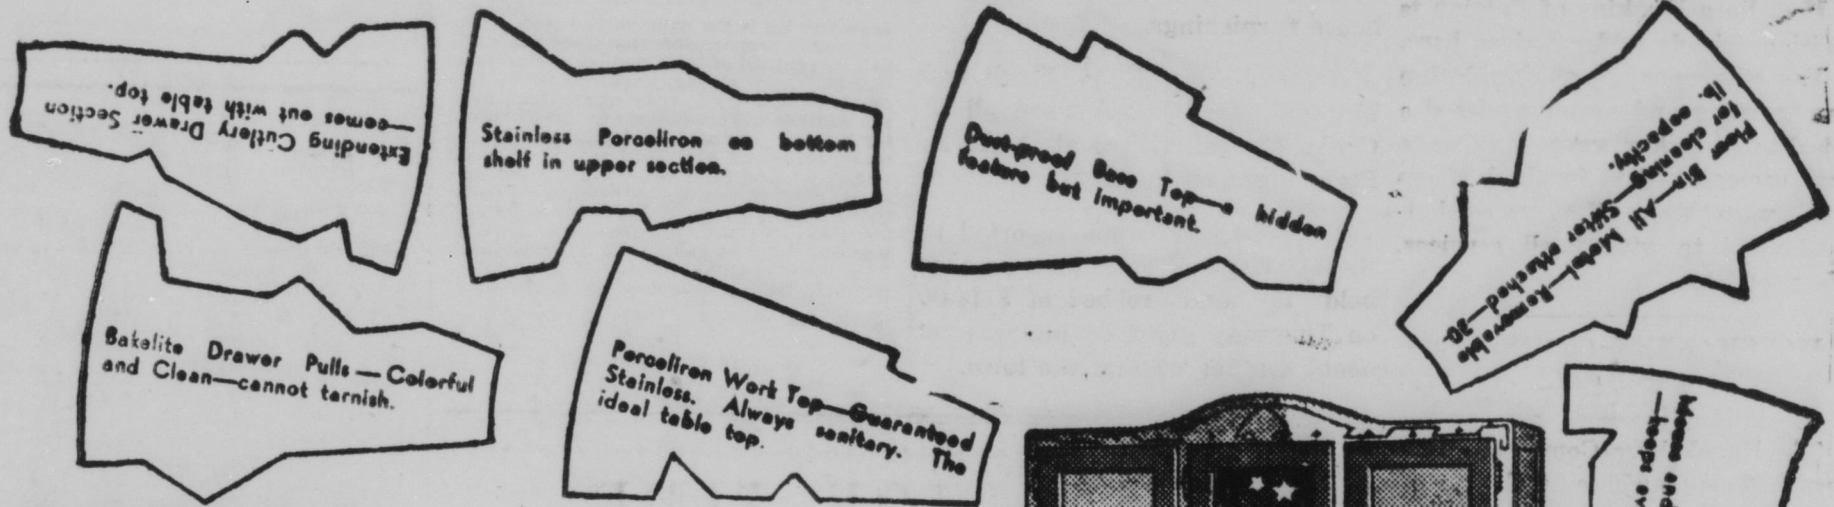 Extending Cutlery Drawer Section
—comes out with table top.
Stainless Porceliron as bottom
shelf in upper section.
Dust-proof Base Top—a hidden
feature but important.
Flour Bin—All Metal—Removable
for cleaning—Sifter attached—30
lb. capacity.
Bakelite Drawer Pulls—Colorful
and Clean—cannot tarnish.
Porceliron Work Top—Guaranteed
Stainless. Always sanitary. The
ideal table top.
Mouse and
—keeps